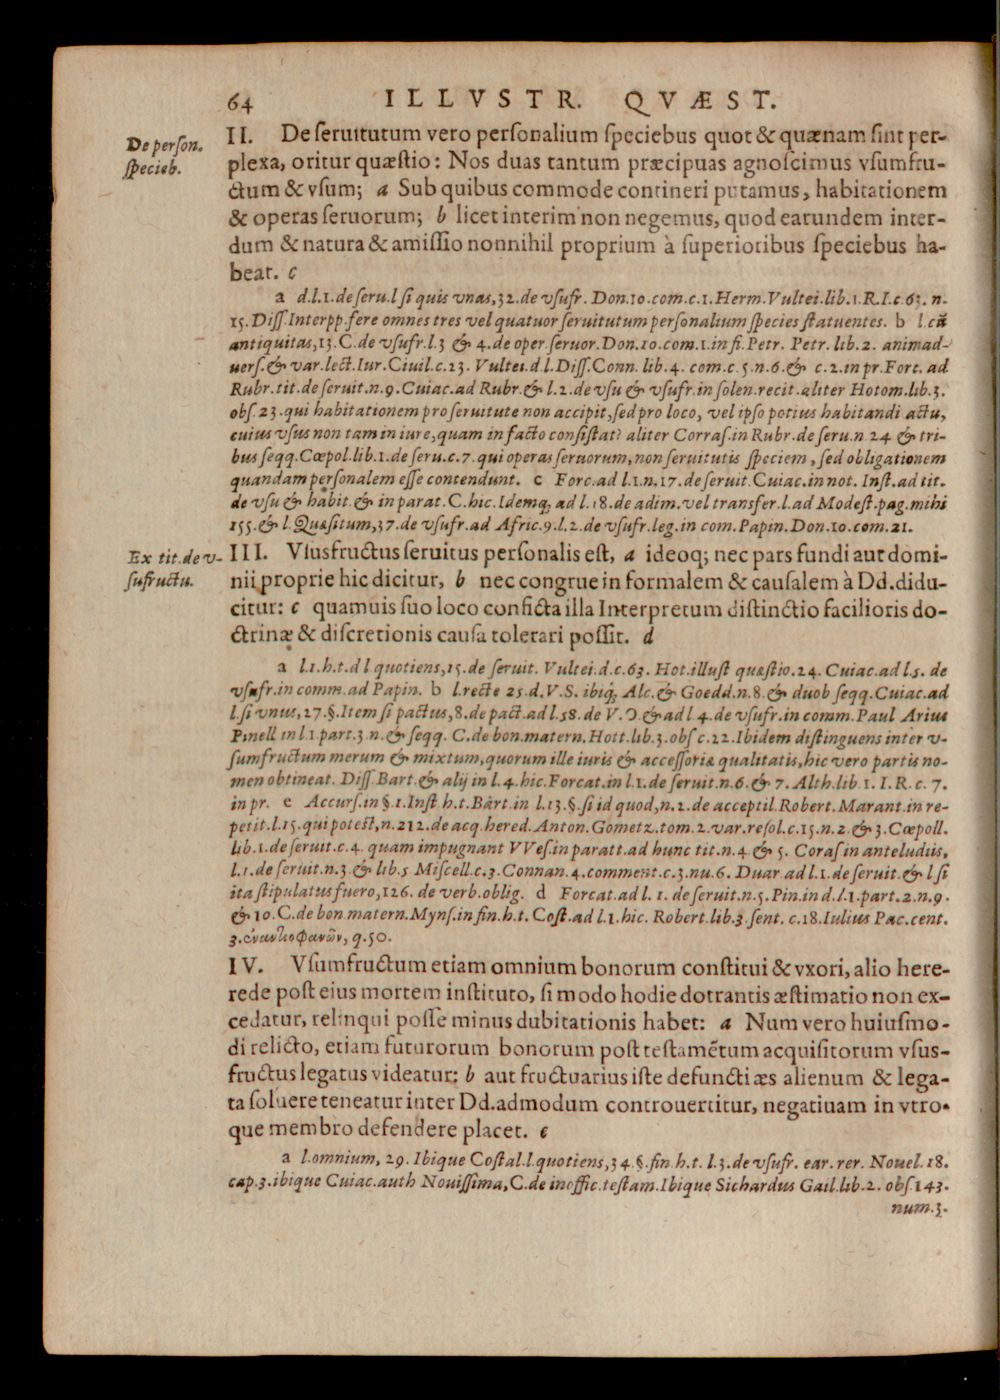 64 ILLVSTR. QVÆST.
De person.
specieb.
II. De seruitutum vero personalium speciebus quot & quænam sint per-
plexa, oritur quæstio: Nos duas tantum præcipuas agnoscimus vsumfru-
ctum & vsum; a Sub quibus commode contineri putamus, habitationem
& operas seruorum; b licet interim non negemus, quod earundem inter-
dum & natura & amissio nonnihil proprium à superioribus speciebus ha-
beat. c
a d.l.1.de seru.l si quis vnas,32.de vsufr. Don.10.com.c.1.Herm.Vultei.lib.1.R.I.c.63. n.
15.Diss.Interpp.fere omnes tres vel quatuor seruitutum personalium species statuentes. b l.cū
antiquitas,13.C.de vsufr.l.3 & 4.de oper.seruor.Don.10.com.1.in fi.Petr. Petr. lib.2. animad-
uers.& var.lect.Iur.Ciuil.c.23. Vultei.d.l.Diss.Conn. lib.4. com.c.5.n.6.& c.2.in pr.Forc. ad
Rubr.tit.de seruit.n.9.Cuiac.ad Rubr.& l.2.de vsu & vsufr.in solen.recit.aliter Hotom.lib.3.
obs.23.qui habitationem pro seruitute non accipit,sed pro loco, vel ipso potius habitandi actu,
cuius vsus non tam in iure,quam in facto consistat? aliter Corras.in Rubr.de seru.n.24 & tri-
bus seqq.Cœpol.lib.1.de seru.c.7.qui operas seruorum,non seruitutis speciem, sed obligationem
quandam personalem esse contendunt. c Forc.ad l.1.n.17.de seruit.Cuiac.in not. Inst.ad tit.
de vsu & habit & in parat.C.hic.Idemq; ad l.18.de adim.vel transfer.l.ad Modest.pag.mihi
155.& l.Quæsitum,37.de vsufr.ad Afric.9.l.2.de vsufr.leg.in com.Papin.Don.10.com.21.
Ex tit.de v-
sufructu.
III. Vsusfructus seruitus personalis est, a ideoq; nec pars fundi aut domi-
nii proprie hic dicitur, b nec congrue in formalem & causalem à Dd.didu-
citur: c quamuis suo loco conficta illa Interpretum distinctio facilioris do-
ctrinæ & discretionis causa tolerari possit. d
a l.1.h.t.d l quotiens,15.de seruit. Vultei.d.c.63. Hot.illust quæstio.24. Cuiac.ad l.5. de
vsufr.in comm.ad Papin. b l.recte 25.d.V.S. ibiq; Alc.& Goedd.n.8.& duob seqq.Cuiac.ad
l.si vnus,27.§.Item si pactus,8.de pact.ad l.58.de V.O.& ad l 4.de vsufr.in comm.Paul Arius
Pinell in l.1 part.3.n.& seqq. C.de bon.matern.Hott.lib.3.obs c.22.Ibidem distinguens inter v-
sumfructum merum & mixtum,quorum ille iuris & accessoriæ qualitatis,hic vero partis no-
men obtineat. Diss.Bart.& alij in l.4.hic.Forcat.in l.1.de seruit.n.6.& 7.Alth.lib 1. I.R.c. 7.
in pr. c Accurs.in §.1.Inst h.t.Bart.in l.13.§.si id quod,n.2.de acceptil.Robert.Marant.in re-
petit.l.15.qui potest,n.212.de acq.hered.Anton.Gometz.tom.2.var.resol.c.15.n.2.& 3.Cœpoll.
lib.1.de seruit.c.4. quam impugnant VVes.in paratt.ad hunc tit.n.4.& 5. Coras in anteludiis,
l.1.de seruit.n.3.& lib.5 Miscell.c.3.Connan.4.comment.c.3.nu.6. Duar.ad l.1.de seruit.& l si
ita stipulatus fuero,126. de verb.oblig. d Forcat.ad l. 1. de seruit.n.5.Pin.in d.l.1.part.2.n.9.
& 10.C.de bon.matern.Myns.in fin.h.t. Cost.ad l.1.hic. Robert.lib.3.sent. c.18.Iulius Pac.cent.
3.ἐναντιοφανῶν, q.50.
IV. Vsumfructum etiam omnium bonorum constitui & vxori, alio here-
rede post eius mortem instituto, si modo hodie dotrantis æstimatio non ex-
cedatur, relinqui posse minus dubitationis habet: a Num vero huiusmo-
di relicto, etiam futurorum bonorum post testamētum acquisitorum vsus-
fructus legatus videatur: b aut fructuarius iste defuncti æs alienum & lega-
ta soluere teneatur inter Dd.admodum controuertitur, negatiuam in vtro-
que membro defendere placet. c
a l.omnium, 29. Ibique Costal.l.quotiens,34.§.fin.h.t. l.3.de vsufr. ear.rer. Nouel.18.
cap.3.ibique Cuiac.auth Nouissima,C.de inoffic.testam.Ibique Sichardus Gail.lib.2. obs.143.
num.3.